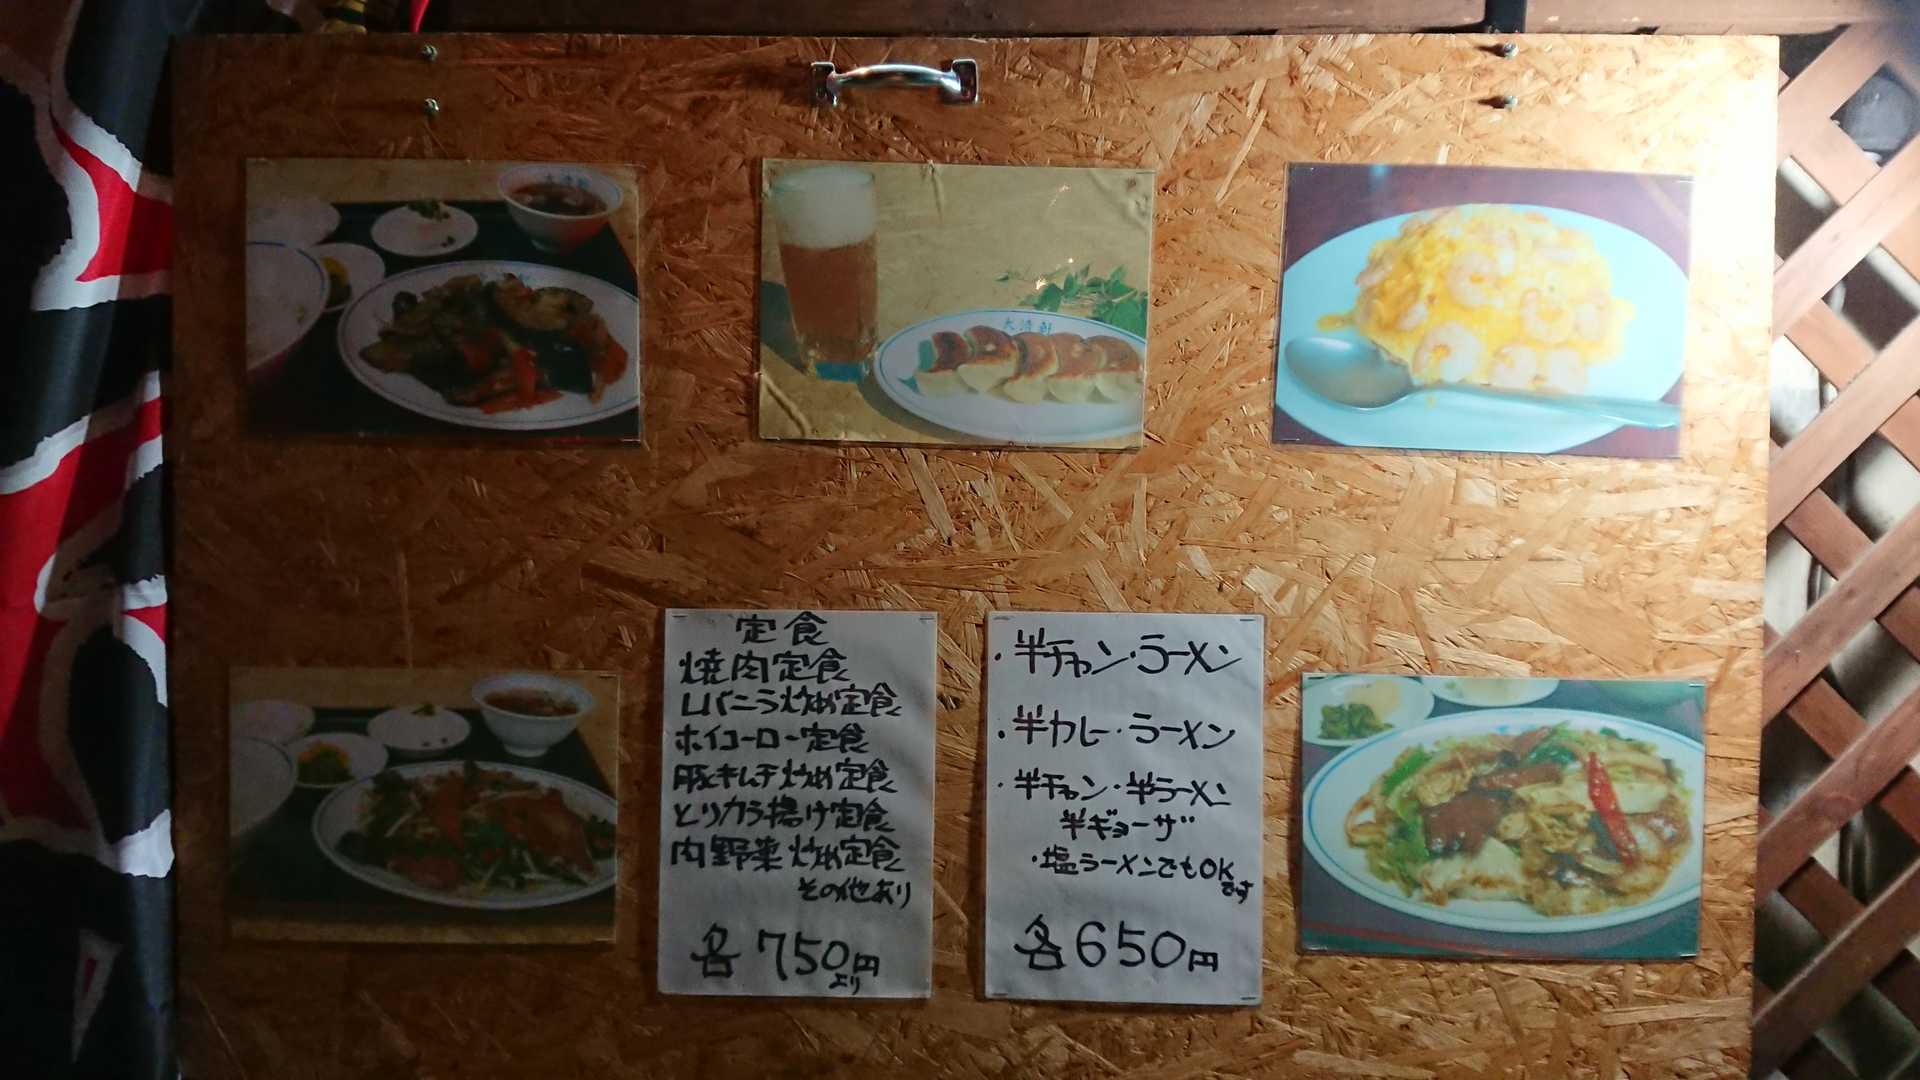 大清軒
定食
焼肉定食
レバニラ炒め定食
ホイコーロー定食
豚キムチ炒め定食
とりカラ揚げ定食
肉野菜炒め定食
その他あり
各750円
より
・半チャン・ラーメン
・半カレー・ラーメン
・半チャン・半ラーメン
半ギョーザ
・塩ラーメンでもOK
です
各650円